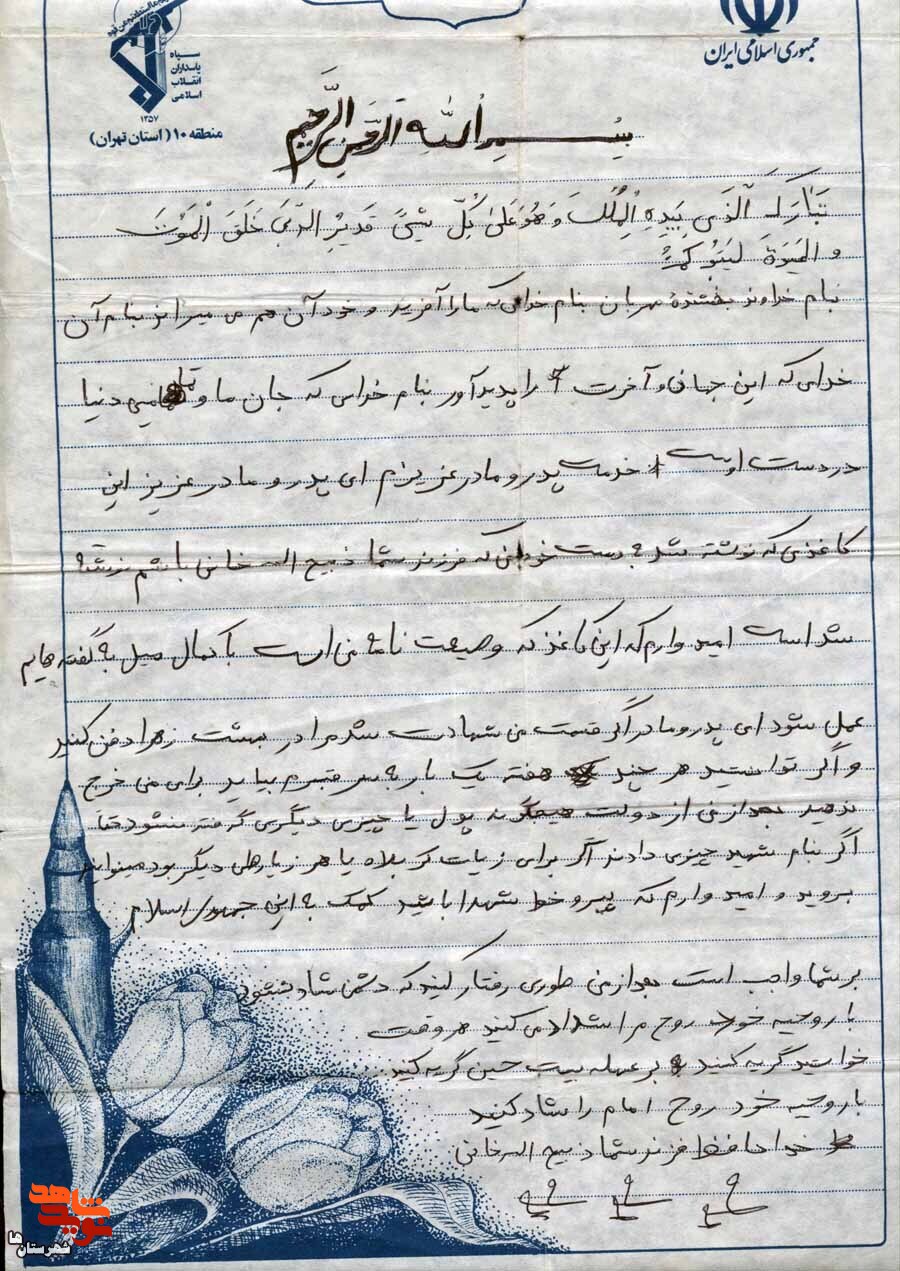 جمهوری اسلامی ایران
سپاه
پاسداران
انقلاب
اسلامی
۱۳۵۷
منطقه ۱۰ (استان تهران)
بسم الله الرحمن الرحیم
تَبارَکَ الَّذی بِیَدِهِ المُلکَ وَ هُوَ عَلیٰ کُلِّ شِیءً قَدیرُ الَّذی خَلَقَ الْمَوْتَ
و الحَیوةَ لیَبلُوَکُم
بنام خداوند بخشندهٔ مهربان بنام خدای که ما را آفرید و خود آن هم می میراند بنام آن
خدای که این جهان و آخرت را پدید آورد بنام خدایی که جان ما و تمامی دنیا
در دست اوست خدمت پدر و مادر عزیزم ای پدر و مادر عزیز این
کاغذی که نوشته شد به دست خودم که فرزند شما ذبیح اله خانی باشم نوشته
شد است امیدوارم که این کاغذ که وصیعت نامه من است با کمال میل به گفته هایم
عمل شود ای پدر و مادر اگر قسمت من شهادت شد مرا در بهشت زهرا دفن کنید
و اگر توانستید هر چند هفته یک بار به سر قبرم بیایید برای من خرج
ندهید بعد از من از دولت هیچگونه پول یا چیزی دیگری گرفته نشود حتا
اگر بنام شهید چیزی دادند اگر برای زیارت کربلاه یا هر زیارطی دیگر بود میتوانید
بروید و امیدوارم که پیرو خط شهدا باشید کمک به این جمهوری اسلام
بر شما واجب است بعد از من طوری رفتار کنید که دشمن شاد نشود
با روحیه خود روح مرا شاد می کنید هر وقت
خواستید گریه کنید بر عهله بیت حسین گریه کنید
با روحیه خود روح امام را شاد کنید
خدا حافظ فرزند شما ذبیح اله خانی
نوید شاهد
شهرستان ها